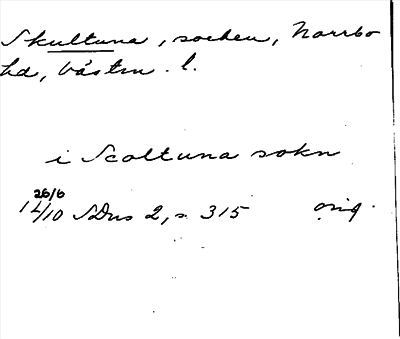 Skultuna, socken, Norrbo
hd, Västm. l.
i Scoltuna sokn
26/6
14/10 SDns 2, s. 315 orig.